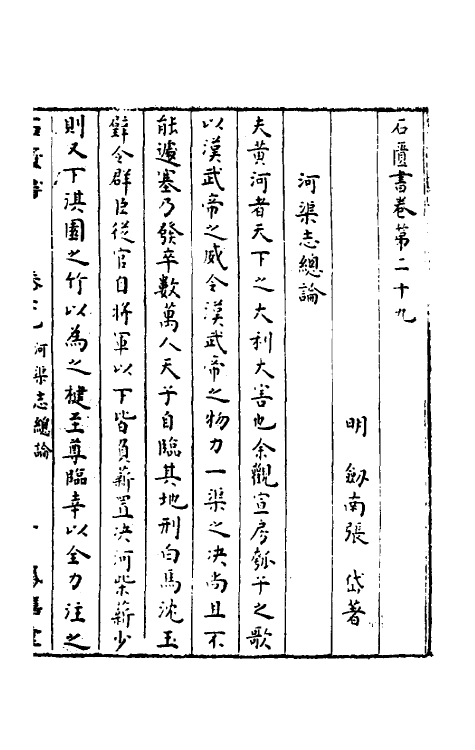 石匱書卷第二十九
明　劔南張　岱著
河渠志總論
夫黃河者天下之大利大害也余觀宣房瓠子之歌
以漢武帝之威令漢武帝之物力一渠之决尚且不
能遽塞乃發卒數萬人天子自臨其地刑白馬沈玉
璧令群臣從官自將軍以下皆負薪置决河柴薪少
則又下淇園之竹以為之楗至尊臨幸以全力注之
石匱書　卷廿九　河渠志總論　一　鳳嬉堂